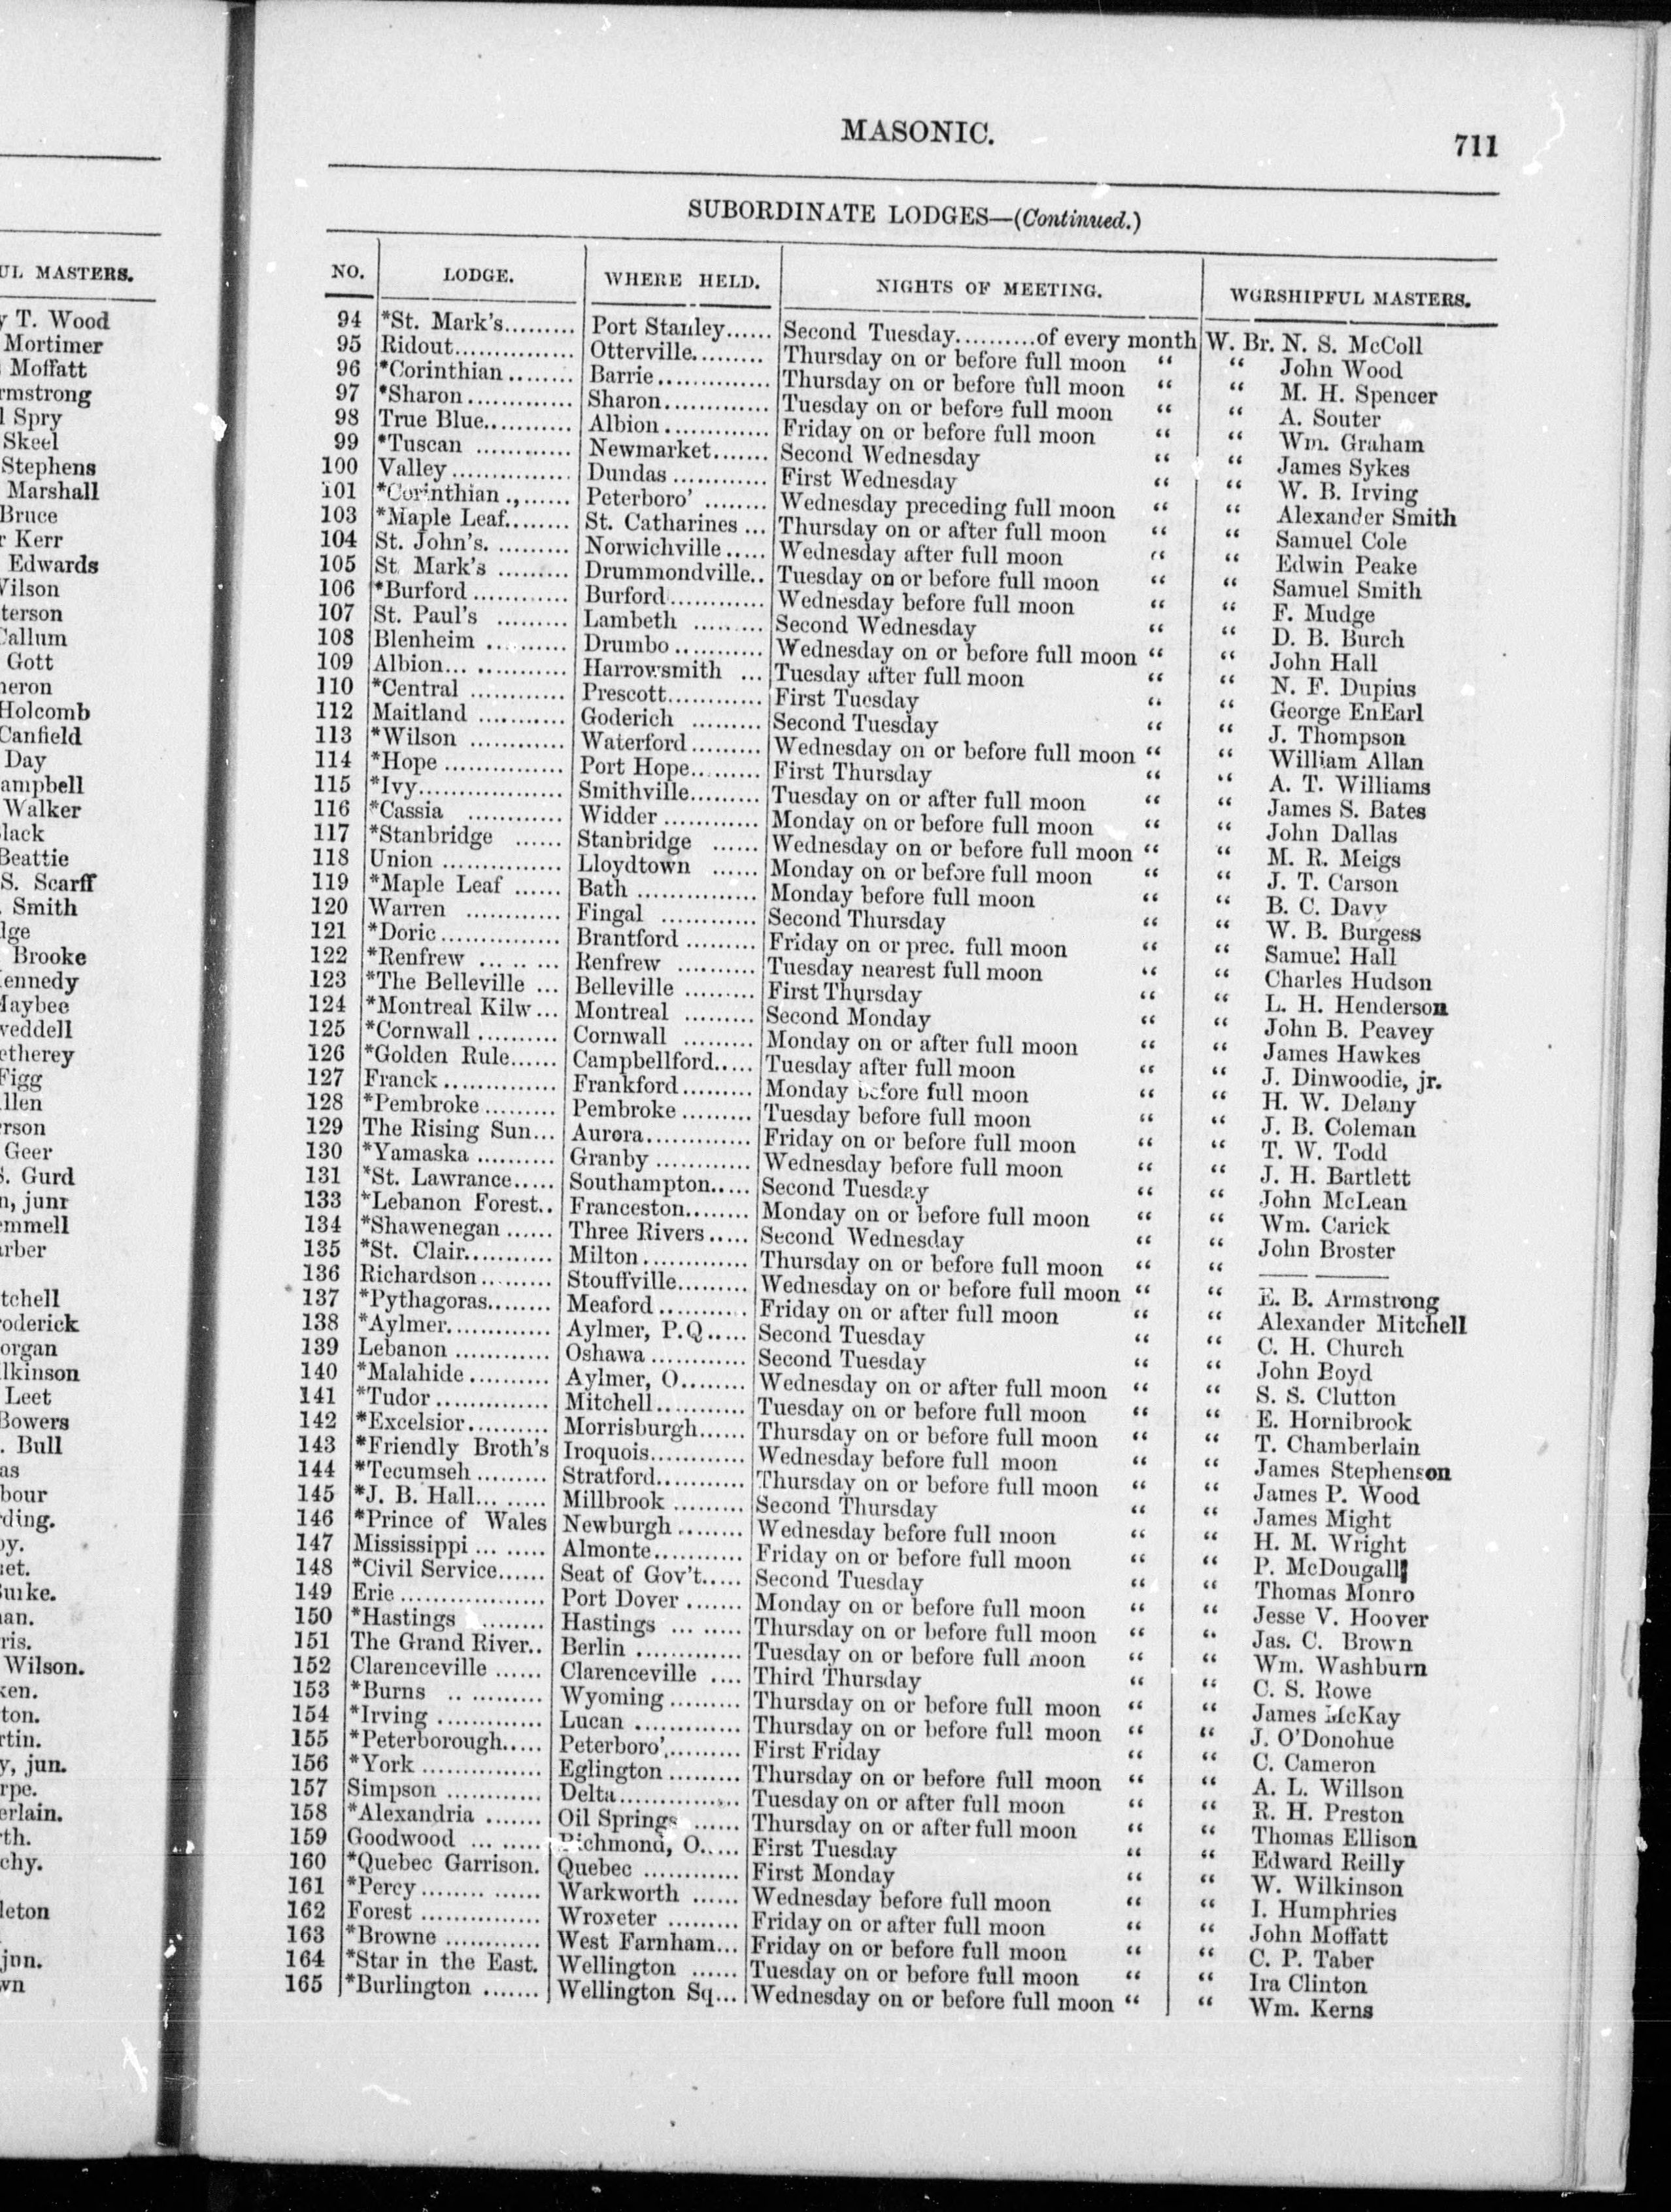 UL MASTERS.
y T. Wood
Mortimer
Moffatt
rmstrong
l Spry
Skeel
Stephens
Marshall
Bruce
r Kerr
Edwards
Wilson
terson
Callum
Gott
neron
Holcomb
Canfield
Day
ampbell
Walker
lack
Beattie
S. Scarff
. Smith
lge
Brooke
Kennedy
Maybee
weddell
etherey
Figg
llen
erson
Geer
S. Gurd
n, junr
emmell
arber
tchell
oderick
organ
lkinson
Leet
Bowers
. Bull
as
bour
ding.
oy.
et.
uike.
an.
ris.
Wilson.
ken.
ton.
rtin.
y, jun.
rpe.
erlain.
th.
chy.
leton
jun.
wn
MASONIC. 711
SUBORDINATE LODGES—(Continued.)
NO. LODGE. WHERE HELD. NIGHTS OF MEETING. WORSHIPFUL MASTERS.
94 *St. Mark's......... Port Stanley...... Second Tuesday..........of every month W. Br. N. S. McColl
95 Ridout............... Otterville......... Thursday on or before full moon “ “ John Wood
96 *Corinthian ........ Barrie.............. Thursday on or before full moon “ “ M. H. Spencer
97 *Sharon ............. Sharon............. Tuesday on or before full moon “ “ A. Souter
98 True Blue........... Albion ............. Friday on or before full moon “ “ Wm. Graham
99 *Tuscan ............ Newmarket....... Second Wednesday “ “ James Sykes
100 Valley ............... Dundas ............ First Wednesday “ “ W. B. Irving
101 *Corinthian ........ Peterboro' ........ Wednesday preceding full moon “ “ Alexander Smith
103 *Maple Leaf........ St. Catharines ... Thursday on or after full moon “ “ Samuel Cole
104 St. John's. ......... Norwichville ..... Wednesday after full moon “ “ Edwin Peake
105 St. Mark's ......... Drummondville.. Tuesday on or before full moon “ “ Samuel Smith
106 *Burford ............ Burford............ Wednesday before full moon “ “ F. Mudge
107 St. Paul's ......... Lambeth ......... Second Wednesday “ “ D. B. Burch
108 Blenheim .......... Drumbo ........... Wednesday on or before full moon “ “ John Hall
109 Albion... ........... Harrowsmith ... Tuesday after full moon “ “ N. F. Dupius
110 *Central ............ Prescott............ First Tuesday “ “ George EnEarl
112 Maitland ........... Goderich ......... Second Tuesday “ “ J. Thompson
113 *Wilson ............ Waterford......... Wednesday on or before full moon “ “ William Allan
114 *Hope ............... Port Hope......... First Thursday “ “ A. T. Williams
115 *Ivy.................. Smithville......... Tuesday on or after full moon “ “ James S. Bates
116 *Cassia ............ Widder ............ Monday on or before full moon “ “ John Dallas
117 *Stanbridge ...... Stanbridge ...... Wednesday on or before full moon “ “ M. R. Meigs
118 Union ............... Lloydtown ...... Monday on or before full moon “ “ J. T. Carson
119 *Maple Leaf ...... Bath ............... Monday before full moon “ “ B. C. Davy
120 Warren ............ Fingal ............ Second Thursday “ “ W. B. Burgess
121 *Doric............... Brantford ......... Friday on or prec. full moon “ “ Samuel Hall
122 *Renfrew ... ... ... Renfrew .......... Tuesday nearest full moon “ “ Charles Hudson
123 *The Belleville ... Belleville ......... First Thursday “ “ L. H. Henderson
124 *Montreal Kilw... Montreal ......... Second Monday “ “ John B. Peavey
125 *Cornwall .......... Cornwall ......... Monday on or after full moon “ “ James Hawkes
126 *Golden Rule...... Campbellford..... Tuesday after full moon “ “ J. Dinwoodie, jr.
127 Franck .............. Frankford......... Monday before full moon “ “ H. W. Delany
128 *Pembroke ......... Pembroke ......... Tuesday before full moon “ “ J. B. Coleman
129 The Rising Sun... Aurora............. Friday on or before full moon “ “ T. W. Todd
130 *Yamaska .......... Granby ............ Wednesday before full moon “ “ J. H. Bartlett
131 *St. Lawrance..... Southampton..... Second Tuesday “ “ John McLean
133 *Lebanon Forest.. Franceston........ Monday on or before full moon “ “ Wm. Carick
134 *Shawenegan ...... Three Rivers ..... Second Wednesday “ “ John Broster
135 *St. Clair........... Milton ............. Thursday on or before full moon “ “ —— ——
136 Richardson ......... Stouffville......... Wednesday on or before full moon “ “ E. B. Armstrong
137 *Pythagoras........ Meaford ........... Friday on or after full moon “ “ Alexander Mitchell
138 *Aylmer............. Aylmer, P.Q ..... Second Tuesday “ “ C. H. Church
139 Lebanon ............ Oshawa ............ Second Tuesday “ “ John Boyd
140 *Malahide .......... Aylmer, O........ Wednesday on or after full moon “ “ S. S. Clutton
141 *Tudor .............. Mitchell........... Tuesday on or before full moon “ “ E. Hornibrook
142 *Excelsior.......... Morrisburgh...... Thursday on or before full moon “ “ T. Chamberlain
143 *Friendly Broth's Iroquois............ Wednesday before full moon “ “ James Stephenson
144 *Tecumseh ......... Stratford........... Thursday on or before full moon “ “ James P. Wood
145 *J. B. Hall... ...... Millbrook ......... Second Thursday “ “ James Might
146 *Prince of Wales Newburgh ........ Wednesday before full moon “ “ H. M. Wright
147 Mississippi ... ...... Almonte........... Friday on or before full moon “ “ P. McDougall
148 *Civil Service...... Seat of Gov't..... Second Tuesday “ “ Thomas Monro
149 Erie .................. Port Dover ....... Monday on or before full moon “ “ Jesse V. Hoover
150 *Hastings ........ Hastings ... ...... Thursday on or before full moon “ “ Jas. C. Brown
151 The Grand River.. Berlin ............. Tuesday on or before full moon “ “ Wm. Washburn
152 Clarenceville ...... Clarenceville .... Third Thursday “ “ C. S. Rowe
153 *Burns .. .......... Wyoming ......... Thursday on or before full moon “ “ James McKay
154 *Irving ............. Lucan ............. Thursday on or before full moon “ “ J. O'Donohue
155 *Peterborough..... Peterboro'.......... First Friday “ “ C. Cameron
156 *York ............... Eglington ......... Thursday on or before full moon “ “ A. L. Willson
157 Simpson ............ Delta............... Tuesday on or after full moon “ “ R. H. Preston
158 *Alexandria ....... Oil Springs ...... Thursday on or after full moon “ “ Thomas Ellison
159 Goodwood ... ...... Richmond, O..... First Tuesday “ “ Edward Reilly
160 *Quebec Garrison. Quebec ............ First Monday “ “ W. Wilkinson
161 *Percy ........ ...... Warkworth ...... Wednesday before full moon “ “ I. Humphries
162 Forest ............... Wroxeter ......... Friday on or after full moon “ “ John Moffatt
163 *Browne ............ West Farnham... Friday on or before full moon “ “ C. P. Taber
164 *Star in the East. Wellington ...... Tuesday on or before full moon “ “ Ira Clinton
165 *Burlington ....... Wellington Sq... Wednesday on or before full moon “ “ Wm. Kerns